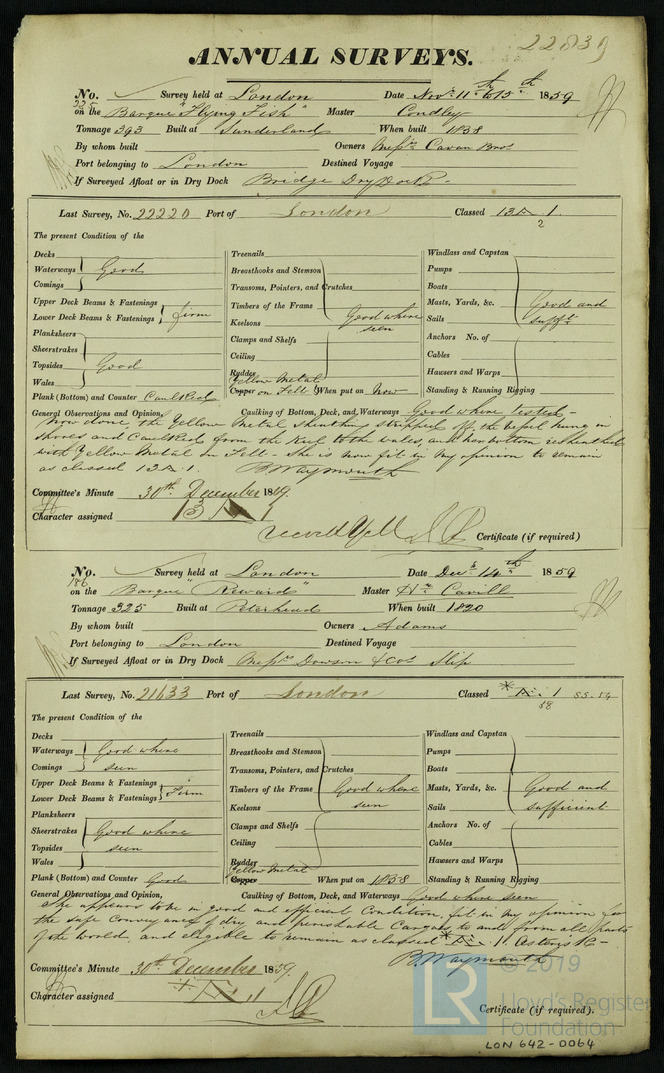 22839
ANNUAL SURVEYS.
No. Survey held at London Date Novr. 11th to 15th 1859
225
on the Barque "Flying Fish" Master Condley
Tonnage 393 Built at Sunderland When built 1838
By whom built Owners Messrs Cavan Bros
Port belonging to London Destined Voyage
If Surveyed Afloat or in Dry Dock Bridge Dry Dock -
Last Survey, No. 22220 Port of London Classed 13A 1.
2
The present Condition of the
Decks
Waterways Good
Comings
Upper Deck Beams & Fastenings
Lower Deck Beams & Fastenings firm
Planksheers
Sheerstrakes
Topsides Good
Wales
Plank (Bottom) and Counter Caulked
Treenails
Breasthooks and Stemson
Transoms, Pointers, and Crutches
Timbers of the Frame Good where
Keelsons seen
Clamps and Shelfs
Ceiling
Rudder
Yellow Metal
Copper on Felt When put on Now
Windlass and Capstan
Pumps
Boats
Masts, Yards, &c. Good and
Sails sufft.
Anchors No. of
Cables
Hawsers and Warps
Standing & Running Rigging
General Observations and Opinion, Caulking of Bottom, Deck, and Waterways Good where tested -
Now done, the Yellow Metal sheathing stripped off, the vessel hung in
shores and Caulked from the Keel to the wales, and her bottom resheathed
with Yellow Metal on Felt - She is now fit in my opinion to remain
as classed 13A.1. B Waymouth
Committee's Minute 30th December 1859.
Character assigned 13 A 1
Certificate (if required)
No. Survey held at London Date Decr. 14th 1859
186
on the Barque "Reward" Master Wm Cavill
Tonnage 325 Built at Peterhead When built 1820
By whom built Owners Adams
Port belonging to London Destined Voyage
If Surveyed Afloat or in Dry Dock Messrs Dowson & Cos Slip
Last Survey, No. 21633 Port of London Classed * Æ. 1 55.54
58
The present Condition of the
Decks
Waterways Good where
Comings seen
Upper Deck Beams & Fastenings
Lower Deck Beams & Fastenings Firm
Planksheers
Sheerstrakes Good where
Topsides seen
Wales
Plank (Bottom) and Counter Good
Treenails
Breasthooks and Stemson
Transoms, Pointers, and Crutches
Timbers of the Frame Good where
Keelsons seen
Clamps and Shelfs
Ceiling
Rudder
Yellow Metal
Copper When put on 1858
Windlass and Capstan
Pumps
Boats
Masts, Yards, &c. Good and
Sails sufficient
Anchors No. of
Cables
Hawsers and Warps
Standing & Running Rigging
General Observations and Opinion, Caulking of Bottom, Deck, and Waterways Good where seen
She appears to be in good and efficient Condition, fit in my opinion for
the safe Conveyance of dry and perishable Cargoes to and from all parts
of the world, and eligible to remain as classed * Æ. 1
B. Waymouth
Committee's Minute 30th December 1859.
Character assigned * Æ 1
Certificate (if required).
© 2019
LR Lloyd's Register
Foundation
LON 642-0064